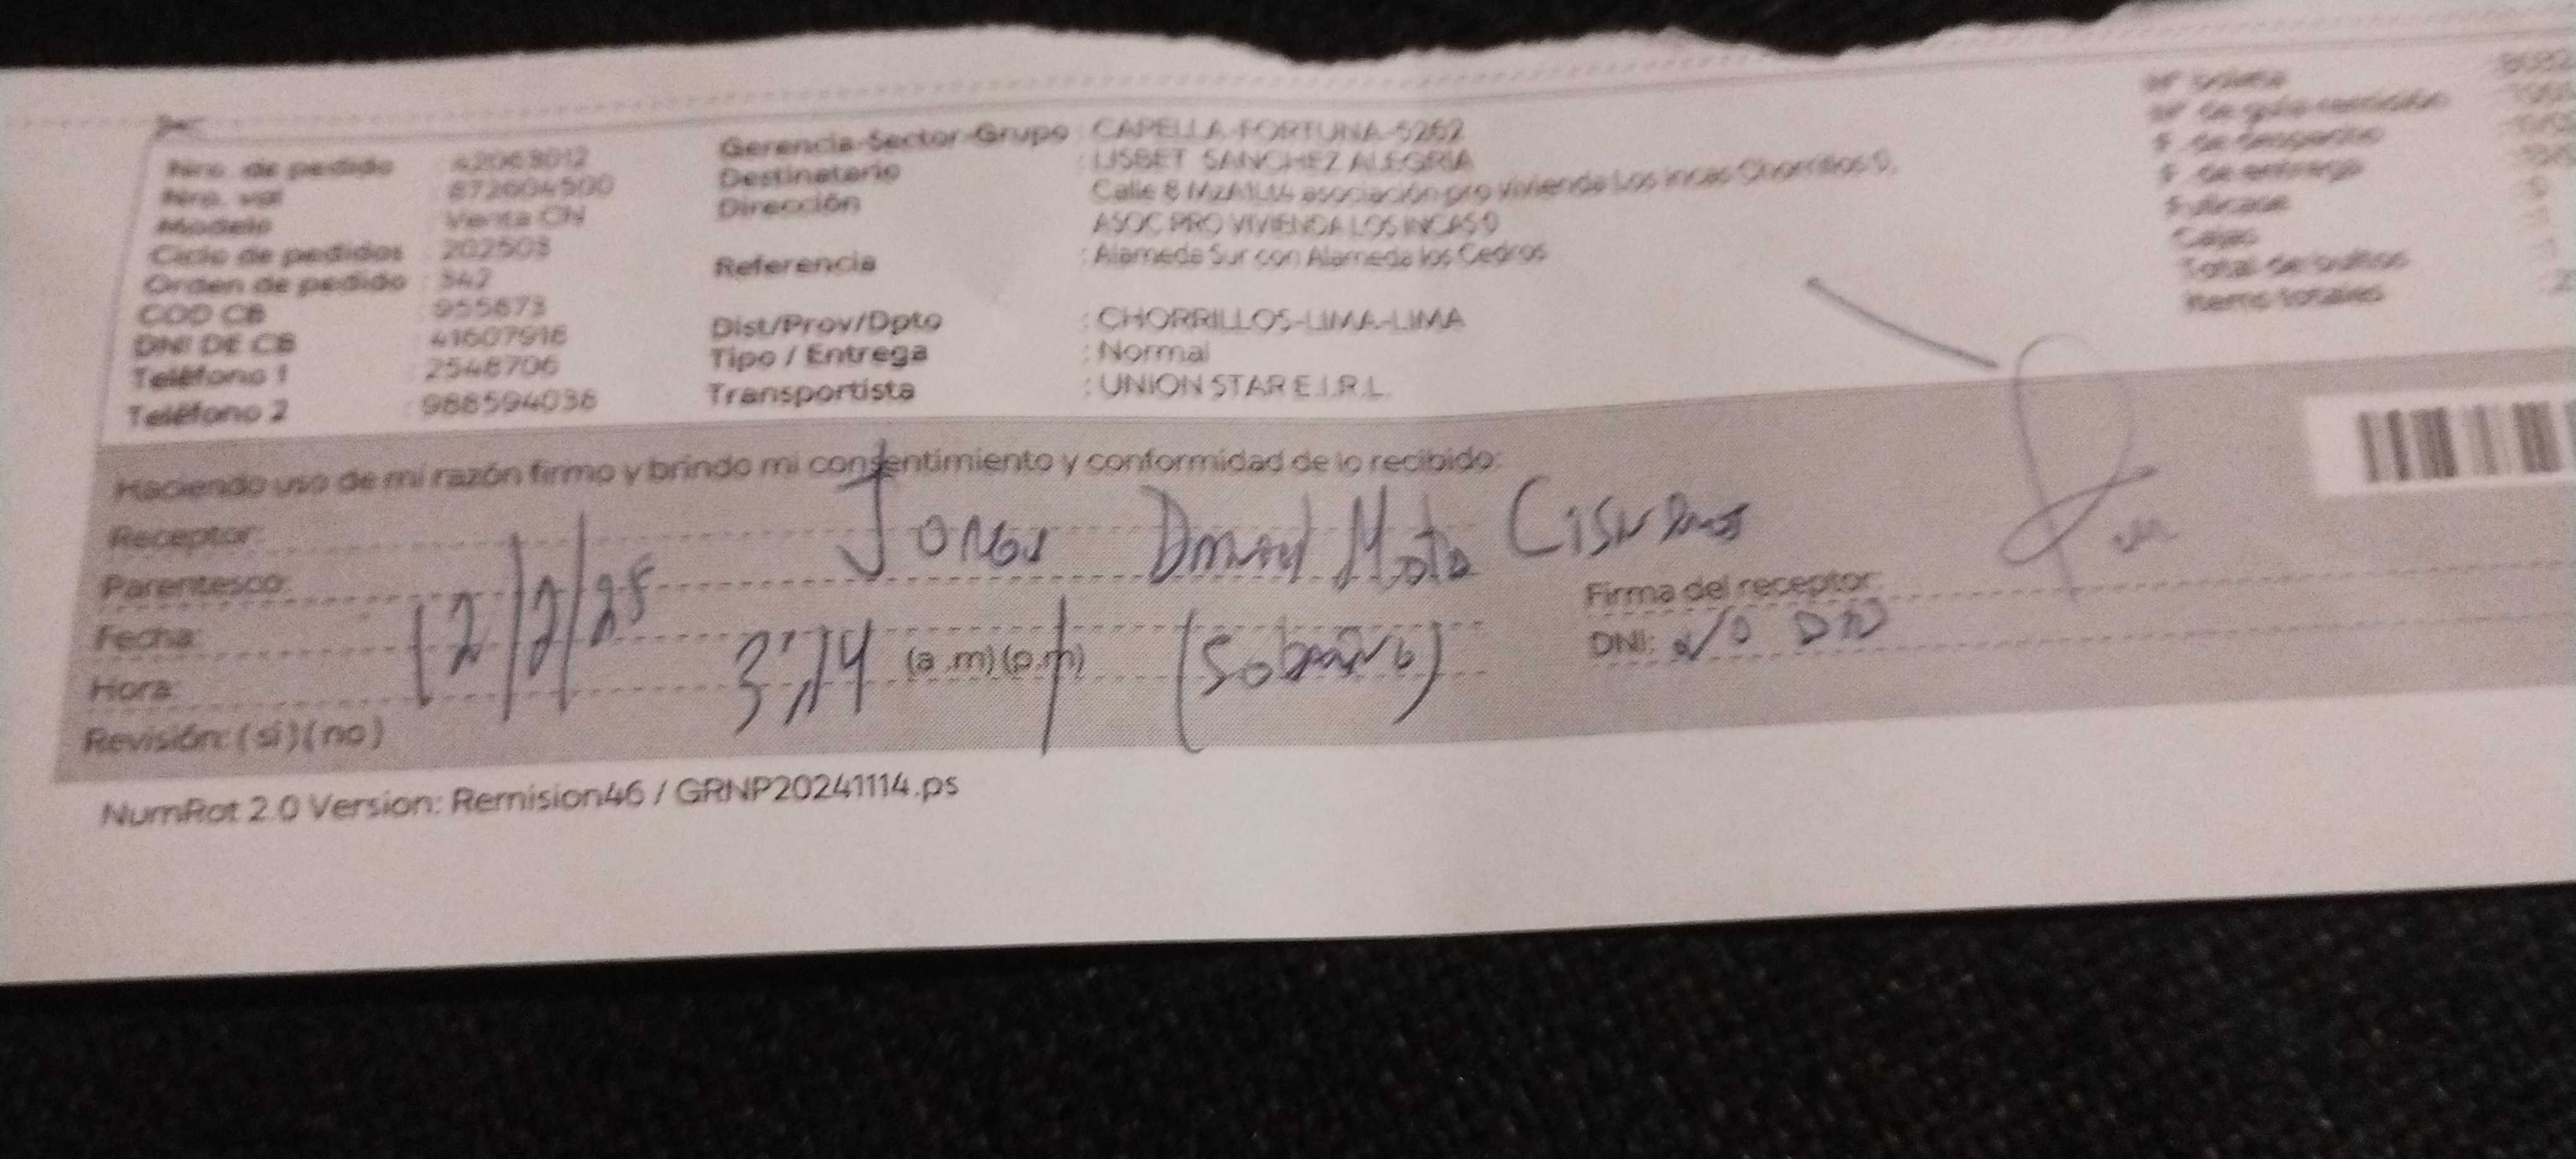 Nro. de pedido : 42063012
Nro. val : 872604500
Modelo : Venta CN
Ciclo de pedidos : 202503
Orden de pedido : 342
COD CB : 955873
DNI DE CB : 41607916
Teléfono 1 : 2548706
Teléfono 2 : 988594038
Gerencia-Sector-Grupo : CAPELLA-FORTUNA-5262
Destinatario : LISBET SANCHEZ ALEGRIA
Dirección : Calle 8 asociación pro vivienda Los incas Chorrillos
ASOC PRO VIVIENDA LOS INCAS
Referencia : Alameda Sur con Alameda los Cedros
Dist/Prov/Dpto : CHORRILLOS-LIMA-LIMA
Tipo / Entrega : Normal
Transportista : UNION STAR E.I.R.L.
F. de entrega
Cajas
Total de bultos
Items totales
Haciendo uso de mi razón firmo y brindo mi consentimiento y conformidad de lo recibido:
Receptor: Mota
Parentesco:
Fecha: 12/2/25
Hora: 3:14 (a.m)(p.m) (Sobrino)
Revisión: (si)(no)
Firma del receptor:
DNI:
NumRot 2.0 Version: Remision46 / GRNP20241114.ps